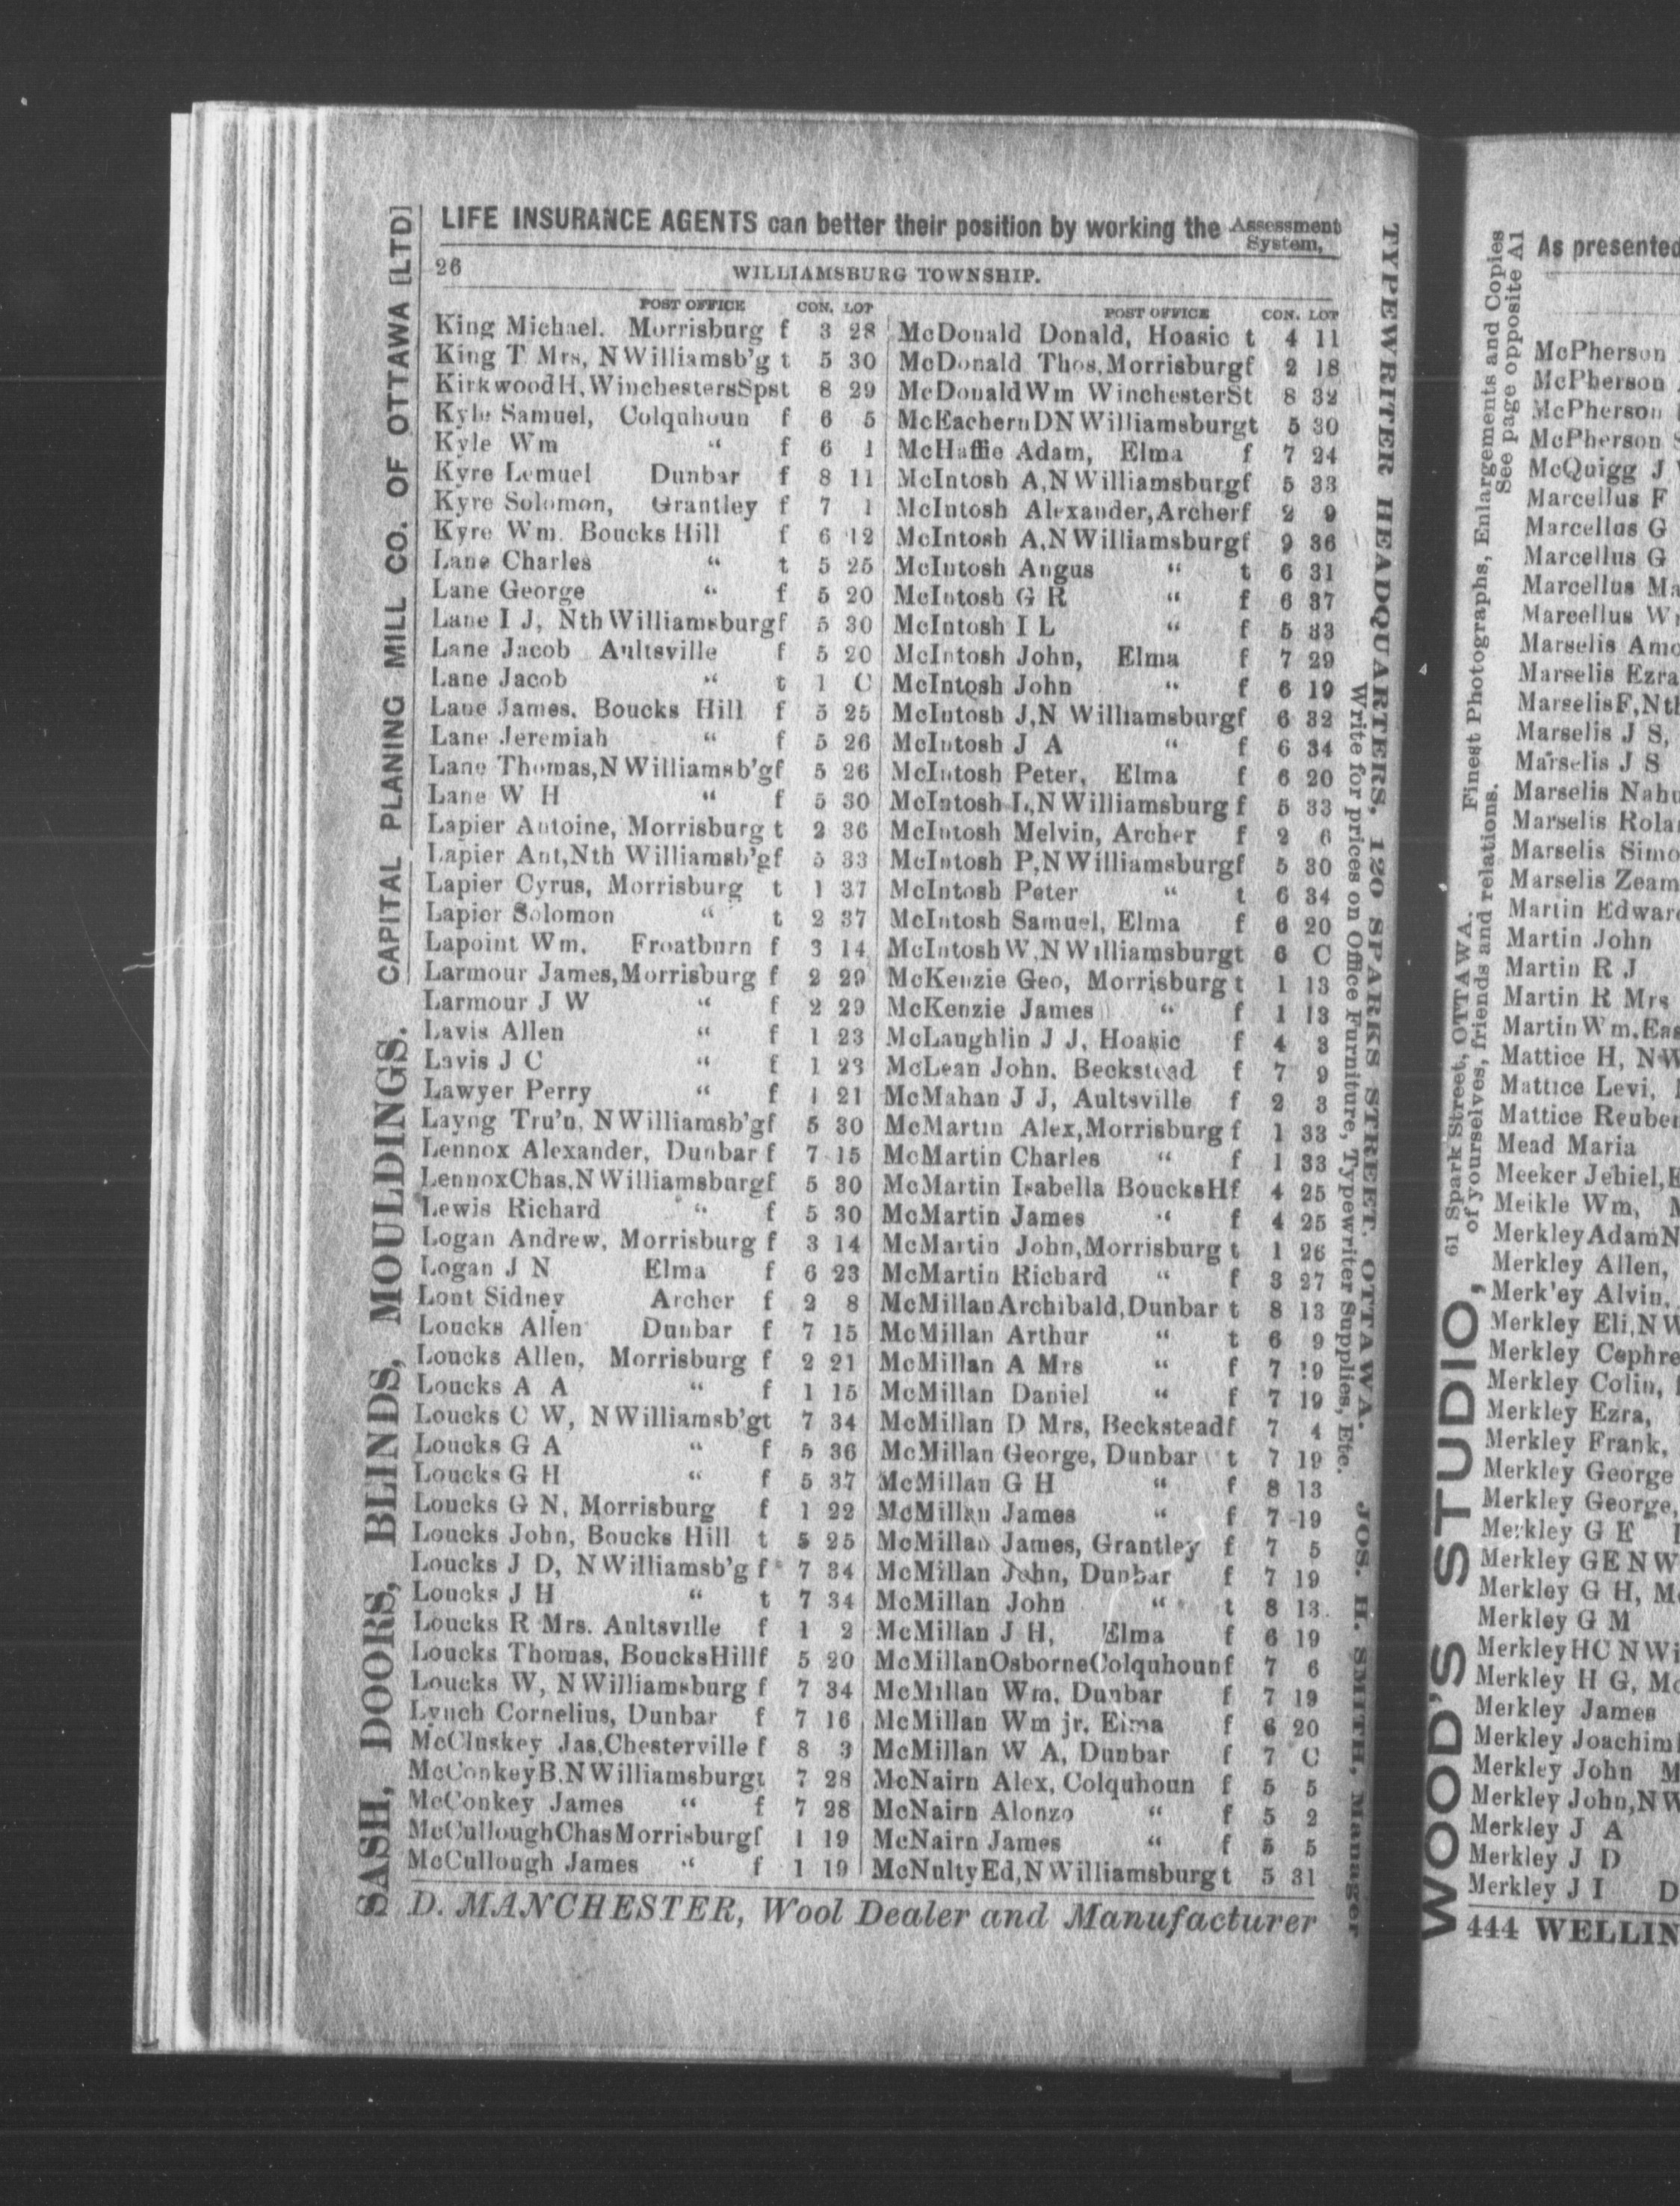 LIFE INSURANCE AGENTS can better their position by working the Assessment System,
26
WILLIAMSBURG TOWNSHIP.
POST OFFICE CON. LOT
King Michael. Morrisburg f 3 28
King T Mrs, N Williamsb'g t 5 30
Kirkwood H, WinchestersSpst 8 29
Kyle Samuel, Colquhoun f 6 5
Kyle Wm “ f 6 1
Kyre Lemuel Dunbar f 8 11
Kyre Solomon, Grantley f 7 1
Kyre Wm. Boucks Hill f 6 12
Lane Charles “ t 5 25
Lane George “ f 5 20
Lane I J, Nth Williamsburgf 5 30
Lane Jacob Aultsville f 5 20
Lane Jacob “ t 1 C
Lane James. Boucks Hill f 5 25
Lane Jeremiah “ f 5 26
Lane Thomas,N Williamsb'gf 5 26
Lane W H “ f 5 30
Lapier Antoine, Morrisburg t 2 36
Lapier Ant,Nth Williamsb'gf 5 33
Lapier Cyrus, Morrisburg t 1 37
Lapier Solomon “ t 2 37
Lapoint Wm. Froatburn f 3 14
Larmour James,Morrisburg f 2 29
Larmour J W “ f 2 29
Lavis Allen “ f 1 23
Lavis J C “ f 1 23
Lawyer Perry “ f 1 21
Layng Tru'n, N Williamsb'gf 5 30
Lennox Alexander, Dunbar f 7 15
LennoxChas,N Williamsburgf 5 30
Lewis Richard “ f 5 30
Logan Andrew, Morrisburg f 3 14
Logan J N Elma f 6 23
Lont Sidney Archer f 2 8
Loucks Allen Dunbar f 7 15
Loucks Allen, Morrisburg f 2 21
Loucks A A “ f 1 15
Loucks C W, N Williamsb'gt 7 34
Loucks G A “ f 5 36
Loucks G H “ f 5 37
Loucks G N, Morrisburg f 1 22
Loucks John, Boucks Hill t 5 25
Loucks J D, N Williamsb'g f 7 34
Loucks J H “ t 7 34
Loucks R Mrs. Aultsville f 1 2
Loucks Thomas, BoucksHillf 5 20
Loucks W, N Williamsburg f 7 34
Lynch Cornelius, Dunbar f 7 16
McCluskey Jas,Chesterville f 8 3
McConkeyB.N Williamsburgt 7 28
McConkey James “ f 7 28
McCulloughChasMorrisburgf 1 19
McCullough James “ f 1 19
POST OFFICE CON. LOT
McDonald Donald, Hoasic t 4 11
McDonald Thos,Morrisburgf 2 18
McDonaldWm WinchesterSt 8 32
McEachernDN Williamsburgt 5 30
McHaffie Adam, Elma f 7 24
McIntosh A,N Williamsburgf 5 33
McIntosh Alexander,Archerf 2 9
McIntosh A,N Williamsburgf 9 36
McIntosh Angus “ t 6 31
McIntosh G R “ f 6 37
McIntosh I L “ f 5 33
McIntosh John, Elma f 7 29
McIntosh John “ f 6 19
McIntosh J,N Williamsburgf 6 32
McIntosh J A “ f 6 34
McIntosh Peter, Elma f 6 20
McIntosh L,N Williamsburg f 5 33
McIntosh Melvin, Archer f 2 6
McIntosh P,N Williamsburgf 5 30
McIntosh Peter “ t 6 34
McIntosh Samuel, Elma f 6 20
McIntosh W,N Williamsburgt 6 C
McKenzie Geo, Morrisburg t 1 13
McKenzie James “ f 1 13
McLaughlin J J, Hoasic f 4 3
McLean John. Beckstead f 7 9
McMahan J J, Aultsville f 2 3
McMartin Alex,Morrisburg f 1 33
McMartin Charles “ f 1 33
McMartin Isabella BoucksHf 4 25
McMartin James “ f 4 25
McMartin John,Morrisburg t 1 26
McMartin Richard “ f 3 27
McMillanArchibald,Dunbar t 8 13
McMillan Arthur “ t 6 9
McMillan A Mrs “ f 7 19
McMillan Daniel “ f 7 19
McMillan D Mrs, Becksteadf 7 4
McMillan George, Dunbar t 7 19
McMillan G H “ f 8 13
McMillan James “ f 7 19
McMillan James, Grantley f 7 5
McMillan John, Dunbar f 7 19
McMillan John “ t 8 13
McMillan J H, Elma f 6 19
McMillanOsborneColquhounf 7 6
McMillan Wm. Dunbar f 7 19
McMillan Wm jr. Elma f 6 20
McMillan W A, Dunbar f 7 C
McNairn Alex, Colquhoun f 5 5
McNairn Alonzo “ f 5 2
McNairn James “ f 5 5
McNultyEd,N Williamsburg t 5 31
D. MANCHESTER, Wool Dealer and Manufacturer
SASH, DOORS, BLINDS, MOULDINGS. CAPITAL PLANING MILL CO. OF OTTAWA [LTD]
TYPEWRITER HEADQUARTERS, 120 SPARKS STREET. OTTAWA. JOS. H. SMITH, Manager
Write for prices on Office Furniture, Typewriter Supplies, Etc.
WOOD'S STUDIO, 61 Spark Street, OTTAWA. Finest Photographs, Enlargements and Copies
of yourselves, friends and relations. See page opposite A1
As presented
McPherson
McPherson
McPherson
McPherson
McQuigg J
Marcellus F
Marcellus G
Marcellus G
Marcellus Ma
Marcellus W
Marselis Amo
Marselis Ezra
MarselisF,Nth
Marselis J S,
Marselis J S
Marselis Nahu
Marselis Rola
Marselis Simo
Marselis Zeam
Martin Edward
Martin John
Martin R J
Martin R Mrs
MartinWm.Eas
Mattice H, NW
Mattice Levi,
Mattice Reuben
Mead Maria
Meeker Jehiel,
Meikle Wm,
MerkleyAdamN
Merkley Allen,
Merk'ey Alvin,
Merkley Eli,NW
Merkley Cephre
Merkley Colin,
Merkley Ezra,
Merkley Frank,
Merkley George
Merkley George,
Merkley G E
Merkley GE N W
Merkley G H, M
Merkley G M
MerkleyHC N Wi
Merkley H G, Mo
Merkley James
Merkley Joachim
Merkley John M
Merkley John,NW
Merkley J A
Merkley J D
Merkley J I D
444 WELLIN